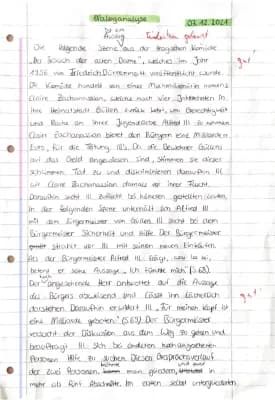 Dialoganalyse 07.12.2021
ist ein
Auszug
Die folgende Szene aus der tragischen Komödie
„Der Besuch der alten Dame“, welches im Jahr
1956 von Friedrich Dürrenmatt veröffentlicht wurde.
Die Komödie handelt von einer Multimillionärin namens
Claire Zachanassian, welche nach vier Jahrzehnten in
ihre Heimatstadt Güllen zurück kehrt, um Gerechtigkeit
und Rache an ihrer Jugendliebe Alfred Ill zu nehmen.
Claire Zachanassian bietet den Bürgern eine Milliarde
Euro, für die Tötung Ill's. Da die Bewohner Güllens
auf das Geld angewiesen sind, stimmen sie dieser
schlimmen Tod zu und diskriminieren daraufhin Ill
wie Claire Zachanassian damals vor ihrer Flucht.
Daraufhin sucht Ill Zuflucht bei höheren gestellten Leuten.
In der folgenden Szene unterhält sich Alfred Ill
mit dem Bürgermeister von Güllen. Ill sucht bei dem
Bürgermeister Sicherheit und Hilfe. Der Bürgermeister
strahlt vor Ill mit seinen neuen Einkäufen.
Als der Bürgermeister Alfred Ill fragt, was los sei,
betont er seine Aussage „Ich fürchte mich“ (S.68).
Der hoch angesehende Herr antwortet auf die Aussage
des Bürgers abweisend und lässt ihn lächerlich
darstehen. Daraufhin erwidert Ill „Für meinen Kopf ist
eine Milliarde geboten.“ (S.69) Der Bürgermeister
versucht der Diskussion aus dem Weg zu gehen und
beauftragt Ill sich bei anderen hochangesehenen
Personen Hilfe zu suchen. Diesen Gesprächsverlauf
der zwei Personen, kann man gliedern, und zwar in
mehr als fünf Abschnitte. Im ersten Absatz unterhalten
gut!
gut!